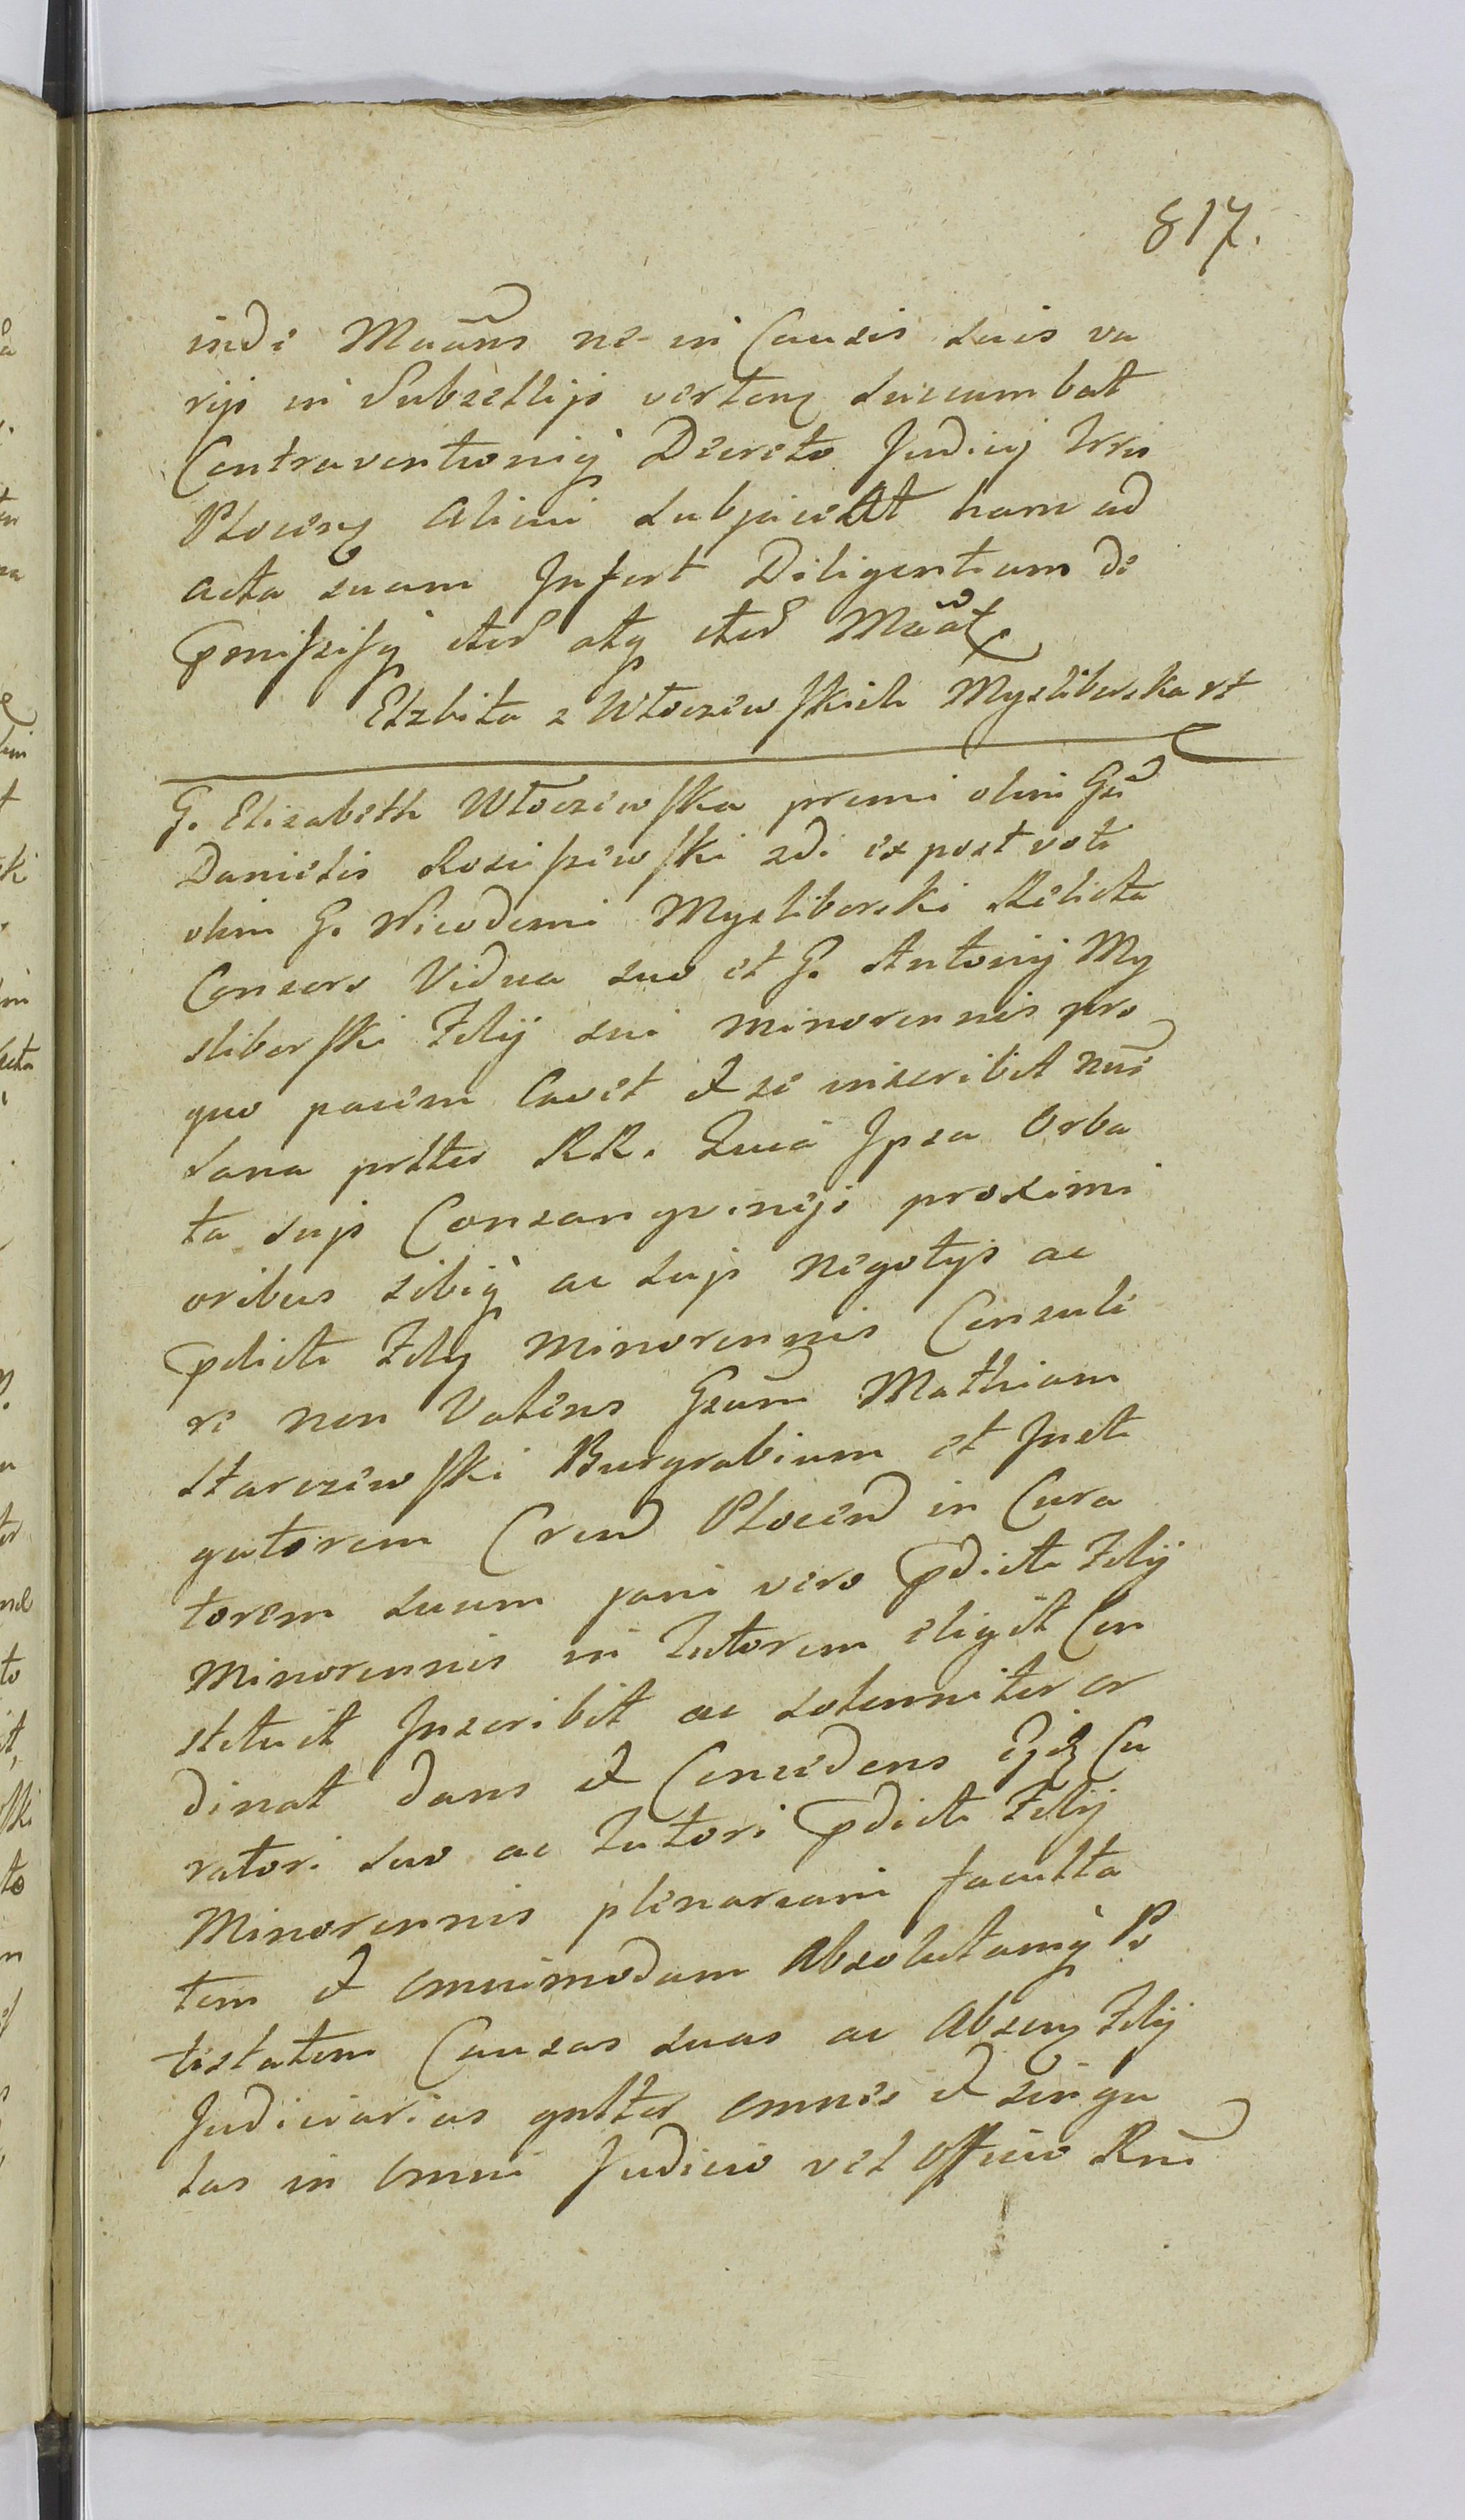 817.
inde Maãns ne in Causis suis va
rijs in Subsellijs verten succumbat
Contraventioniq Decreto Judicij Trri
Plocen alicui subjaceAt hanc ad
acta suam Infert Diligentiam de
pmissisq iterũ atq iterũ Mãat
Elzbieta z Włoczewskich Mysliborska rt
G. Elisabeth Włoczewska primi olim Gsi
Danielis Kosiszewski 2di ex post voti
olim G. Nicodemi Mysliborski Relicta
Consors Vidua suo et G. Antonij My
sliborski Filij sui minorennis pro
quo pacem Cavet et se inscribit nnĩe
sana prltter RR. Quia Ipsa Orba
ta sujs Consangvinejs proximi
oribus sibiq ac sujs Negotijs ac
pdicti Filij Minorennis Consule
re non Valens Gsum Mathiam
Starczewski Burgrabium et Insti
gatorem Cren Plocen in Cura
torem suum jam vero pdicti Filij
Minorennis in Tutorem eligit Con
stituit Inscribit ac solenniter or
dinat dans et Concedens Cu
ratori suo ac Tutori pdicti Filij
Minorennis plenariam faculta
tem et omnimodam Absolutamq Po
testatem Causas suas ac Absen Filij
Judiciarias gnltter omnes et singu
las in omni Judicio vel Officio Rni